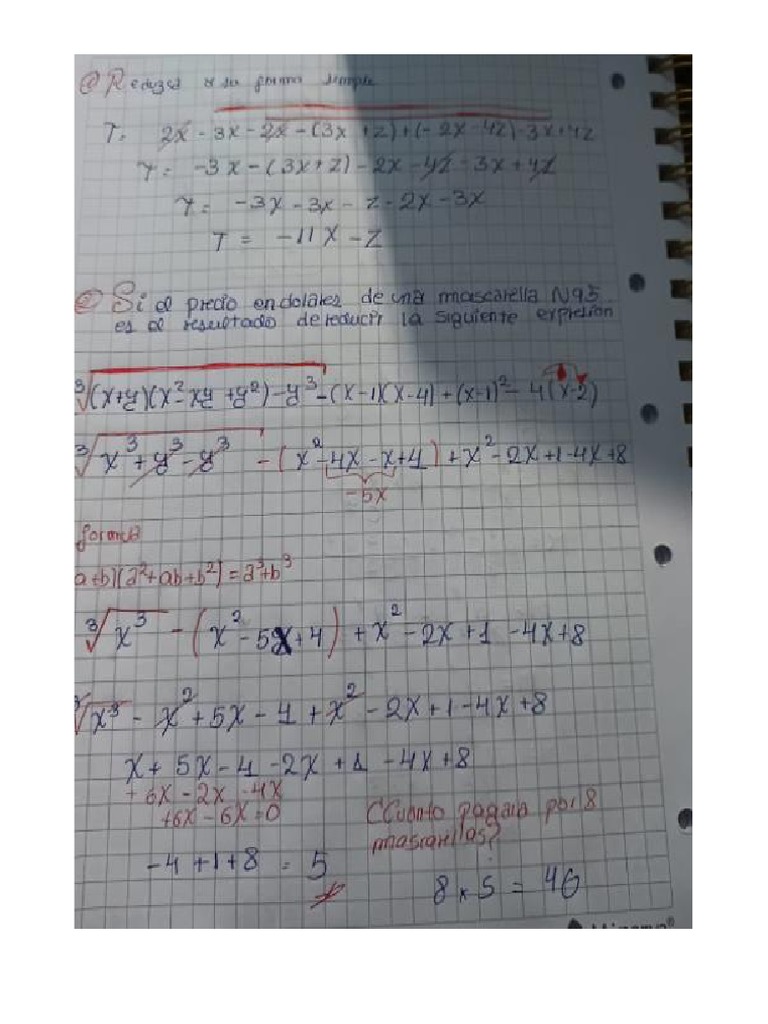 @ Reduzca a su forma simple
T= 2x - 3x - 2x - (3x + z) + (-2x - 4z) - 3x + 4z
T= -3x - (3x + z) - 2x - 4z - 3x + 4z
T= -3x - 3x - z - 2x - 3x
T= -11x - z
Si el precio en dolares de una mascarella N95
es el resultado de reducir la siguiente expresion
∛(x+y)(x²-xy+y²)-y³ - (x-1)(x-4) + (x-1)² - 4(x-2)
∛x³+y³-y³ - (x²-4x-x+4) + x²-2x+1-4x+8
-5x
formula
a+b)(a²+ab+b²)=a³+b³
∛x³ - (x²-5x+4) + x²-2x+1-4x+8
∛x³ - x²+5x-4+x²-2x+1-4x+8
x+5x-4-2x+1-4x+8
+6x-2x-4x
+6x-6x=0
CCuanto pagaria por 8
mascarellas?
-4+1+8 = 5
8 x 5 = 40